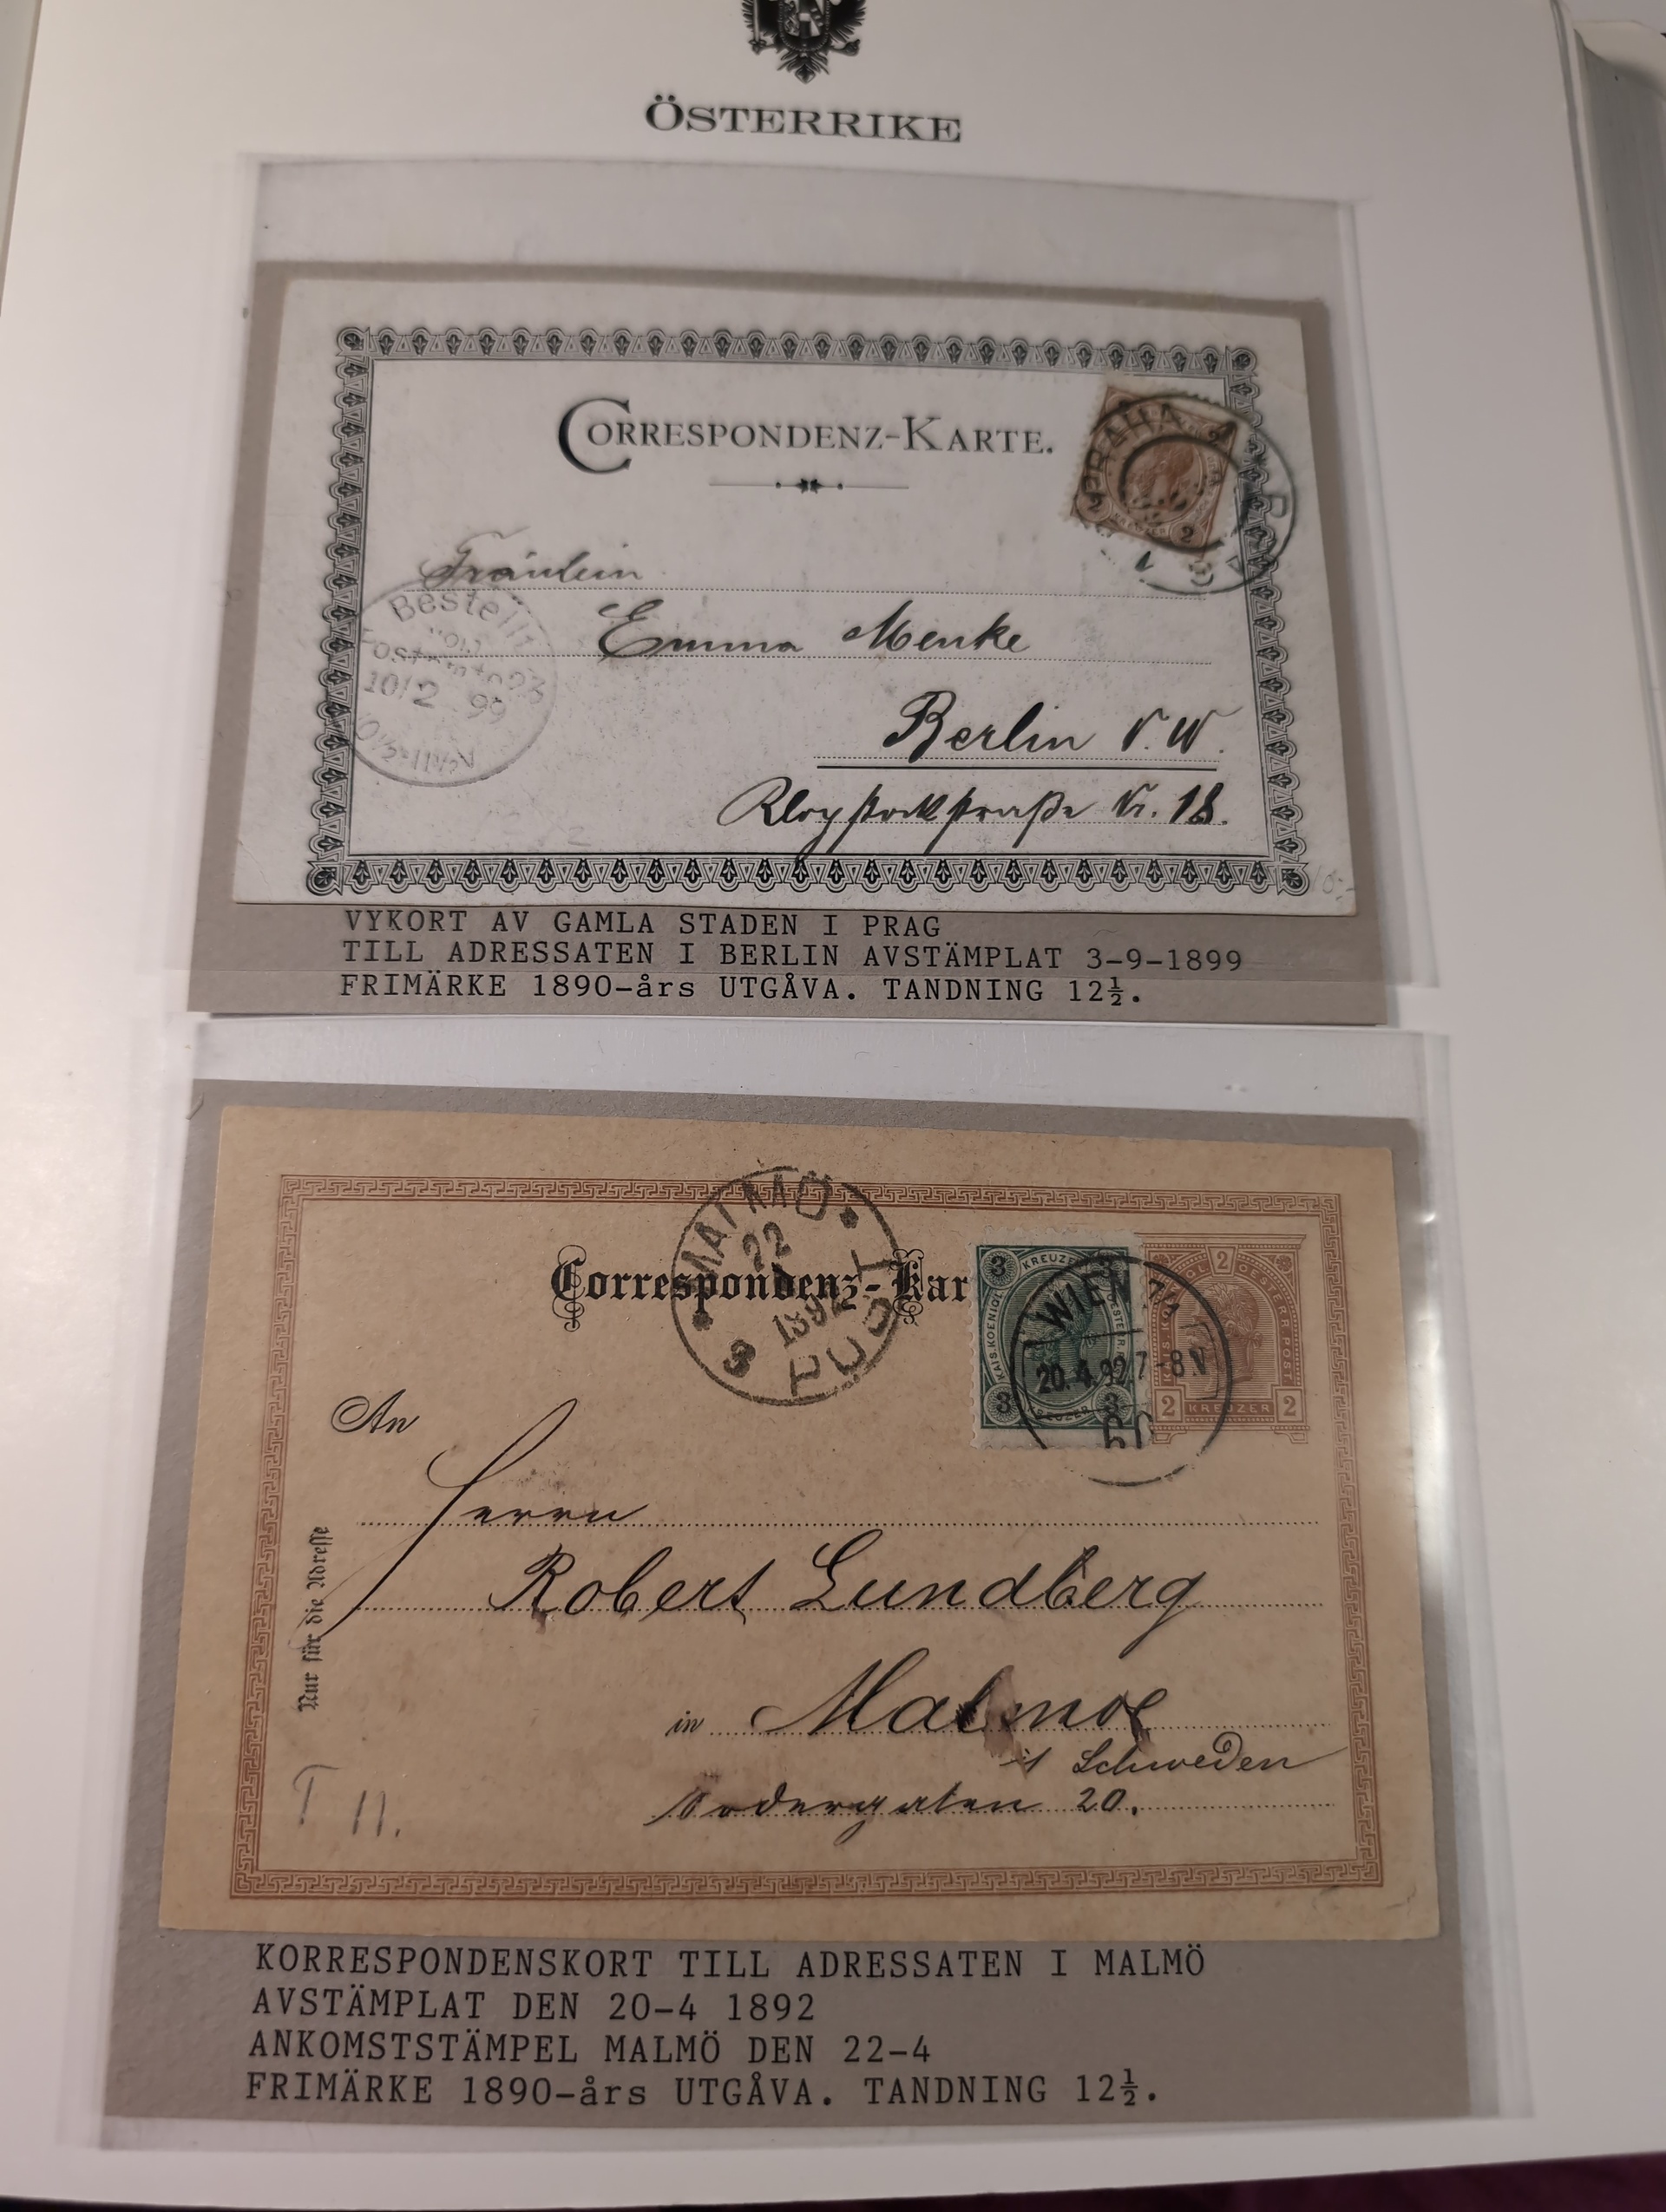 ÖSTERRIKE
CORRESPONDENZ-KARTE.
PRAHA
2 KREUZER 2
Fräulein
Bestellt
vom
Postamte 23
10/2 99
Emma Menke
Berlin N.W.
Klopstockstraße Nr. 18.
VYKORT AV GAMLA STADEN I PRAG
TILL ADRESSATEN I BERLIN AVSTÄMPLAT 3-9-1899
FRIMÄRKE 1890-års UTGÅVA. TANDNING 12½.
MALMÖ
22
1892
3
Correspondenz-Kar
3 KREUZER 3
3 KREUZER 3
2
2 KREUZER 2
WIEN
20.4.92.7-8V
An
Herrn
Robert Lundberg
in Malmoe
Schweden
Södergaten 20.
Nur für die Adresse
T 11.
KORRESPONDENSKORT TILL ADRESSATEN I MALMÖ
AVSTÄMPLAT DEN 20-4 1892
ANKOMSTSTÄMPEL MALMÖ DEN 22-4
FRIMÄRKE 1890-års UTGÅVA. TANDNING 12½.